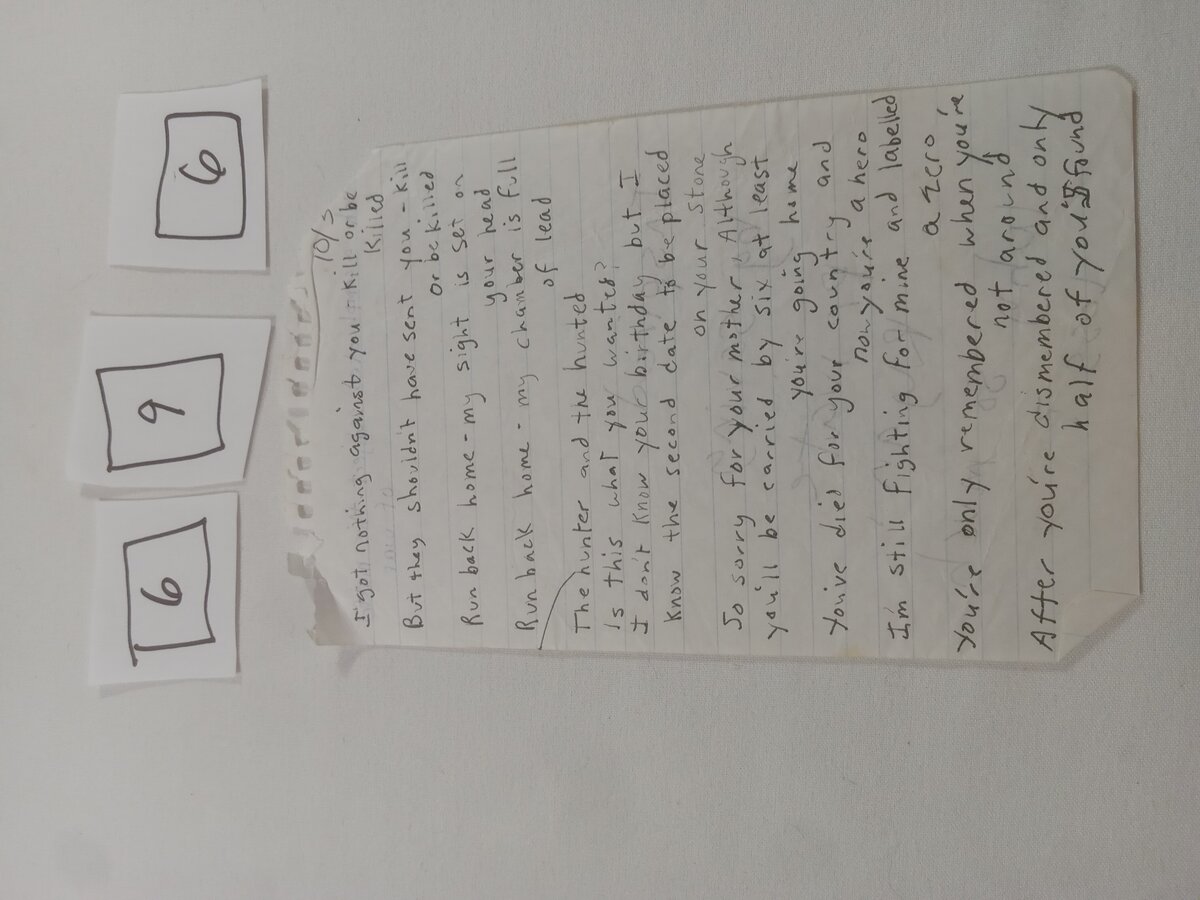 6 9 6
10/3
I got nothing against you kill or be
killed
But they shouldn't have sent you - kill
or be killed
Run back home - my sight is set on
your head
Run back home - my chamber is full
of lead
The hunter and the hunted
Is this what you wanted?
I don't know your birthday but I
know the second date to be placed
on your stone
So sorry for your mother. Although
you'll be carried by six at least
you're going home
You've died for your country and
now you're a hero
I'm still fighting for mine and labelled
a zero
You're only remembered when you're
not around
After you're dismembered and only
half of you is found